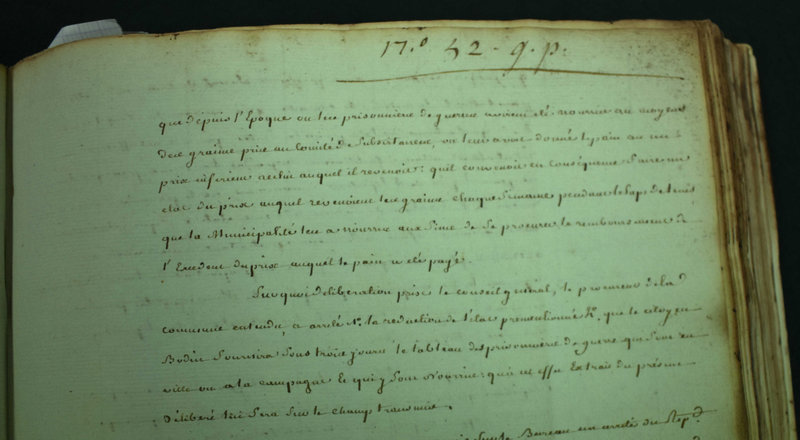 17.o 52 - 9. p.
que depuis l'Epoque ou les prisonniers de guerre avoient été nourris au moyens
des graines pris au Comité de Subsistances, on leur avoit donné le pain au un
prix inferieur a celui auquel il revenoit; quil convenoit en Conséquence faire un
etat du prix auquel revenoient les graines chaque Semaine pendant le laps de tems
que la Municipalité les a nourris aux fins de Se procurer le remboursement de
l'Excedent du prix auquel le pain a été payé.
Sur quoi deliberation prise le conseil général, le procureur de la d
commune entendu, a arrêté 1o. la redaction de l'état prementionné 2o. que le citoyen
Bodin fournira Sous trois jours le tableau des prisonniers de guerre qui Sont en
ville ou a la campagne & qui y Sont nourris; qu'a cet effet Extrait du présent
déliberé lui Sera Sur le champ transmis.
Sur le Bureau un arrêté du Rep.